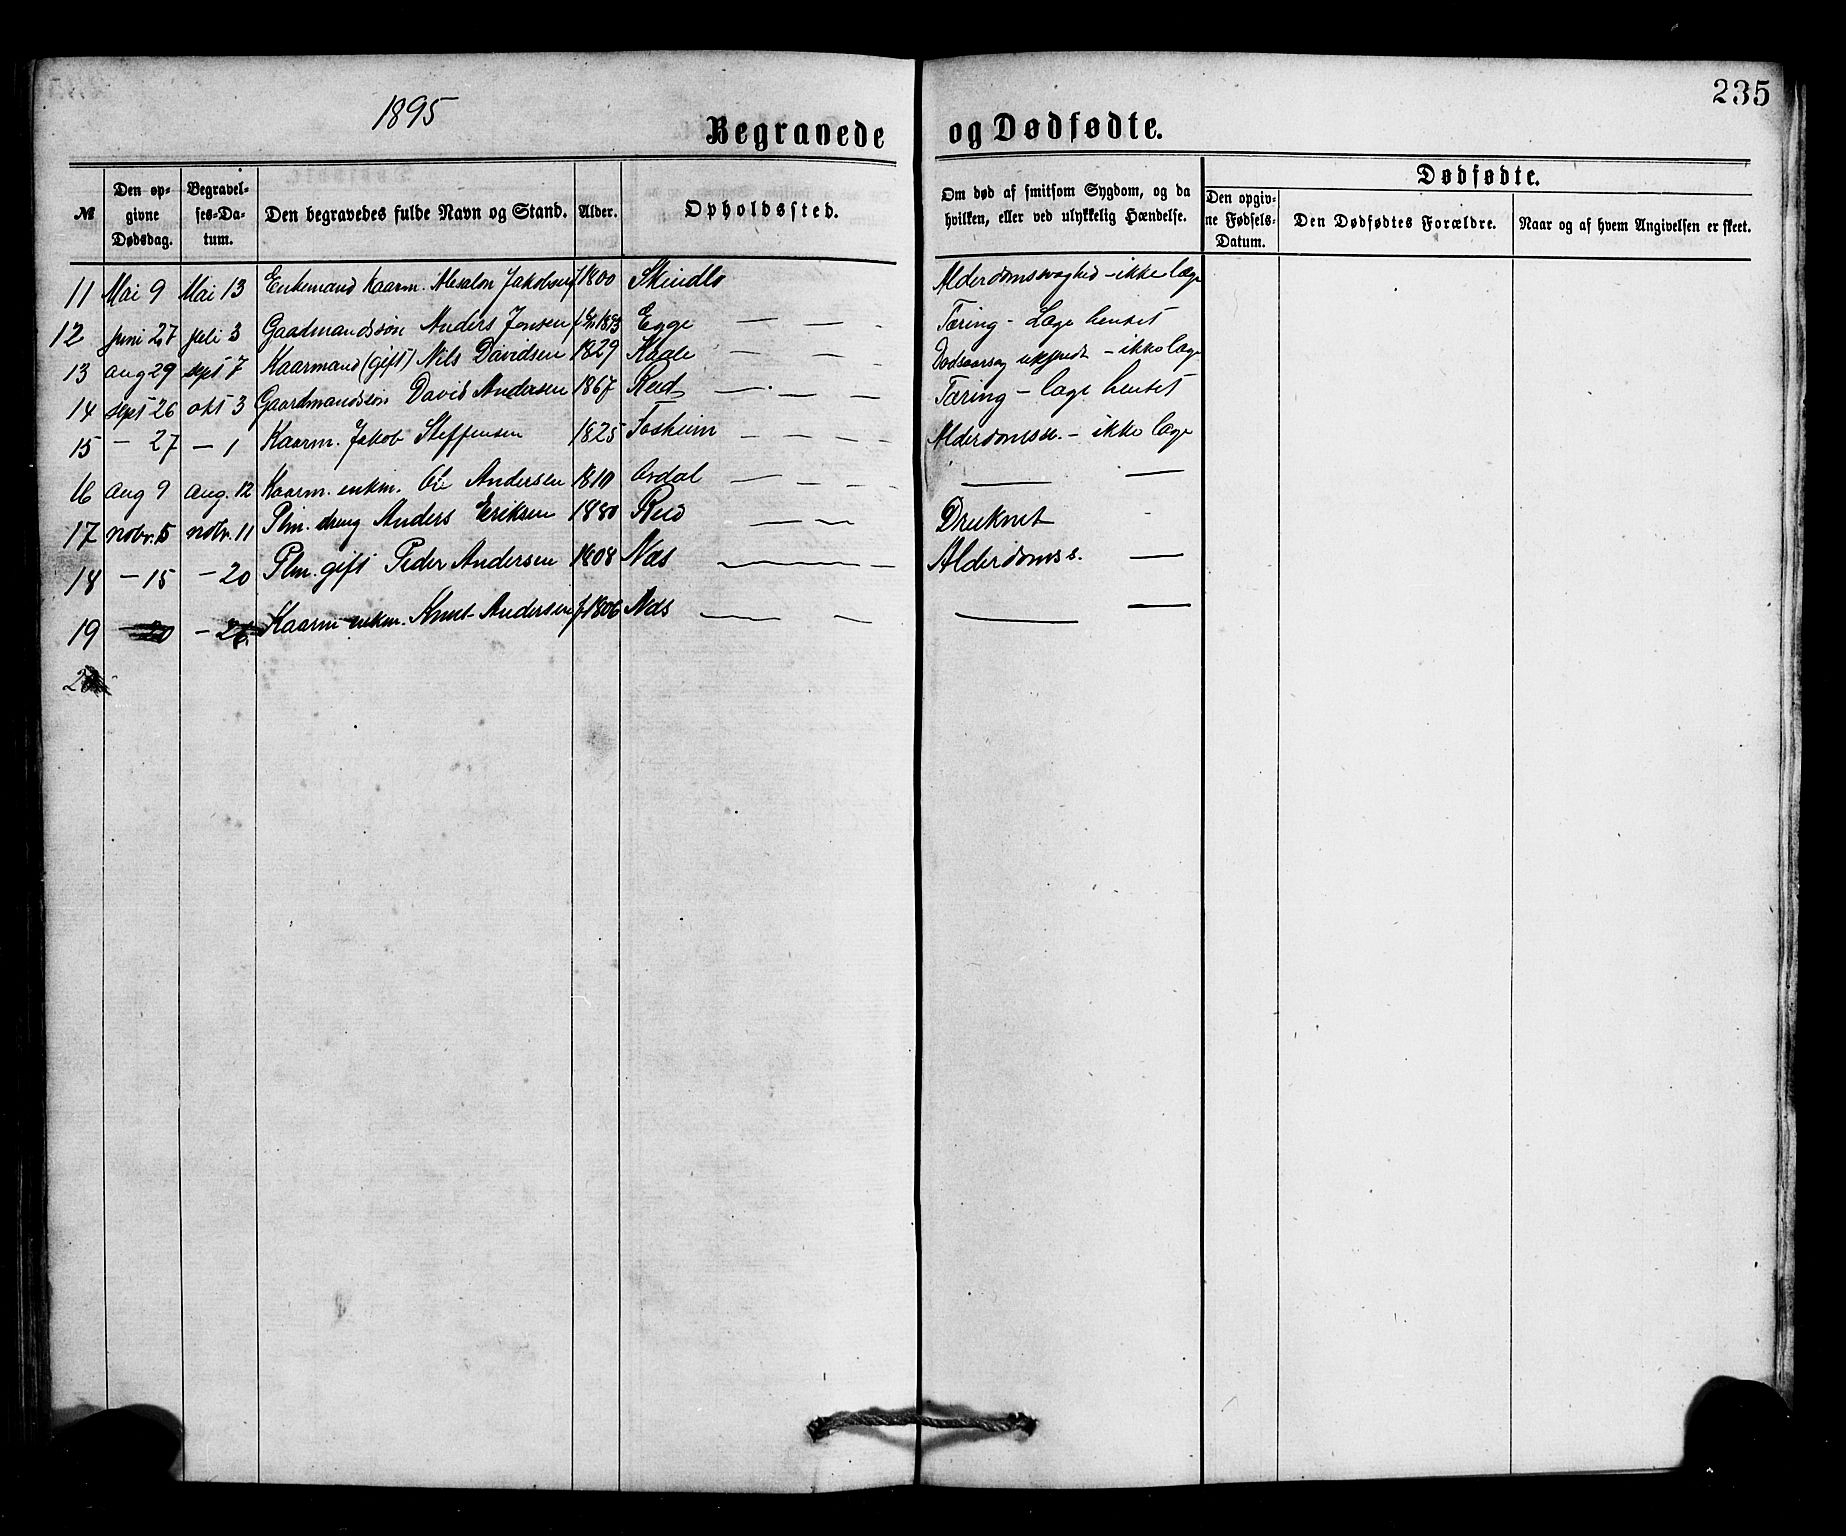 235
1895
Begravede og Dødfødte.
№ | Den opgivne Dødsdag. | Begravelses-Datum. | Den begravedes fulde Navn og Stand. | Alder. | Opholdssted. | Om død af smitsom Sygdom, og da hvilken, eller ved ulykkelig Hændelse. | Dødfødte. | Den opgivne Fødsels-Datum. | Den Dødfødtes Forældre. | Naar og af hvem Angivelsen er skeet.
11 Mai 9 Mai 13 Enkemand Kaarm. Absalon Jakobsen f 1800 Skindlo Alderdomssvaghed - ikke læge
12 Juni 27 Juli 3 Gaadmandssøn Anders Jonsen f 1893 Egge — — - Tæring - Læge hentet
13 aug 29 sept 7 Kaarmand (gift) Nils Davidsen 1829 Kaale - — - Dødsaarsag ukjendt - ikke læge
14 sept 26 okt 3 Gaardmandssøn David Andersen 1867 Reed — — — Tæring - læge hentet
15 - 27 - 1 Kaarm. Jakob Steffensen 1825 Foshiem — — — — Alderdomss. - ikke læge
16 aug 9 aug. 12 Kaarm. enkm. Ole Andersen 1810 Ordal — — — — —
17 novr. 5 novbr. 11 Plm. dreng Anders Eriksen 1880 Reed — — Druknet -
18 - 15 - 20 Plm. gift Peder Andersen 1808 Nes — — Alderdomss. —
19 - 20 - 26 Kaarm enkm. Knut Andersen f 1806 Nes — — — — —